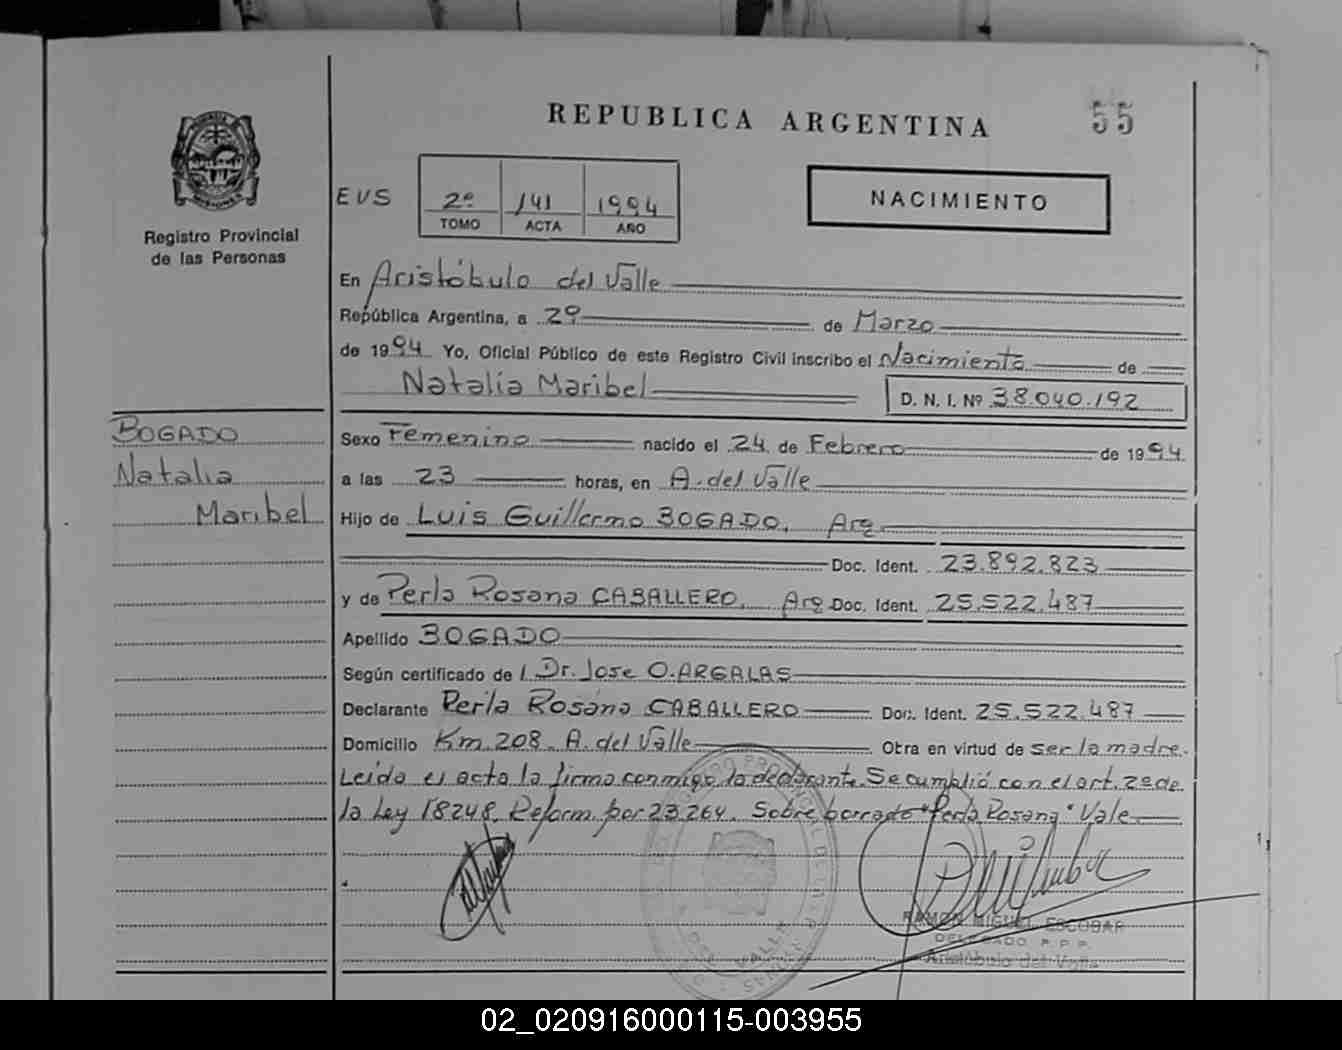 REPUBLICA ARGENTINA
55
Registro Provincial
de las Personas
EVS
2º 141 1994
TOMO ACTA AÑO
NACIMIENTO
En Aristóbulo del Valle
República Argentina, a 29 de Marzo
de 1994 Yo, Oficial Público de este Registro Civil inscribo el Nacimiento de
Natalia Maribel D. N. I. Nº 38.040.192
BOGADO
Natalia
Maribel
Sexo Femenino nacido el 24 de Febrero de 1994
a las 23 horas, en A. del Valle
Hijo de Luis Guillermo BOGADO, Arg.
Doc. Ident. 23.892.823
y de Perla Rosana CABALLERO, Arg. Doc. Ident. 25.522.487
Apellido BOGADO
Según certificado de Dr. Jose O. ARGALAS
Declarante Perla Rosana CABALLERO Doc. Ident. 25.522.487
Domicilio Km. 208. A. del Valle Obra en virtud de ser la madre.
Leída el acta la firma conmigo la declarante. Se cumplió con el art. 2º de
la Ley 18248. Reform. por 23.264. Sobre borrado "Perla Rosana" Vale
RAMON MIGUEL ESCOBAR
DELEGADO R.P.P.
Aristóbulo del Valle
02_020916000115-003955